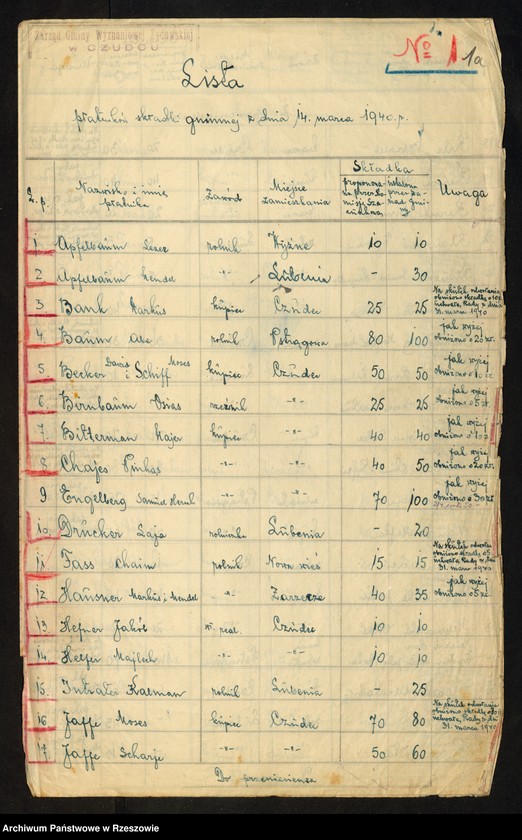 Zarząd Gminy Wyznaniowej Żydowskiej
W CZUDCU
No 1 1a
Lista
płatników składki gminnej z dnia 14. marca 1940. r.
L. p. Nazwisko i imię płatnika Zawód Miejsce zamieszkania Składka Uwaga
proponowana przez Komisję Szacunkową ustalona przez Zarząd Gminy
1 Apfelbaum rolnik Wyżne 10 10
2 Apfelbaum Mendel -"- Lubenia - 30
3 Bank Markus kupiec Czudec 25 25 Na skutek odwołania obniżono składkę uchwałą Rady z dnia 31. marca 1940
4 Baum rolnik Pstrągowa 80 100 jak wyżej obniżono o 20 zł.
5 Becker Dawid i Schiff Moses kupiec Czudec 50 50 jak wyżej obniżono
6 Birnbaum Osias rzeźnik -"- 25 25 jak wyżej obniżono o 5 zł.
7 Bitterman Majer kupiec -"- 40 40 jak wyżej obniżono
8 Chajes Pinkas -"- -"- 40 50 jak wyżej obniżono o 20 zł.
9 Engelberg Samuel -"- -"- 70 100 jak wyżej obniżono o 30 zł
10 Drucker Saja rolniczka Lubenia - 20
11 Fass Chaim rolnik Nowa wieś 15 15 Na skutek odwołania obniżono składkę uchwałą Rady z dnia 31. marca 1940
12 Hausner Markus i Mendel -"- Zarzecze 40 35 jak wyżej obniżono o 5 zł.
13 Hefner Jakób wł. real. Czudec 10 10
14 Majlech -"- -"- 10 10
15. Intrater Kalman rolnik Lubenia - 25
16 Jaffe Moses kupiec Czudec 70 80 Na skutek odwołania obniżono składkę uchwałą Rady z dnia 31. marca 1940
17 Jaffe Scharje -"- -"- 50 60
Do przeniesienia
Archiwum Państwowe w Rzeszowie